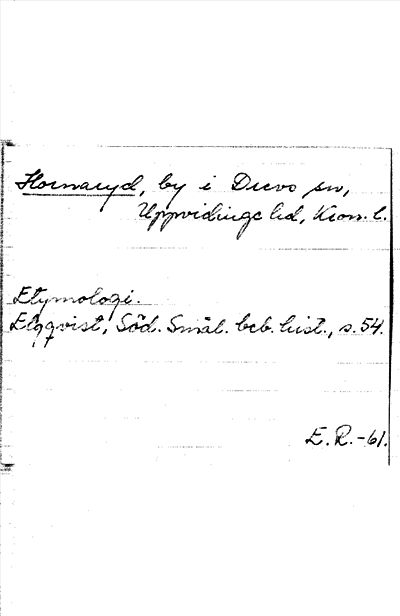 Hornaryd, by i Drevs sn,
Uppvidinge hd, Kron. l.
Etymologi.
Elgqvist, Söd. Smål. beb. hist., s. 54.
E. R. -61.